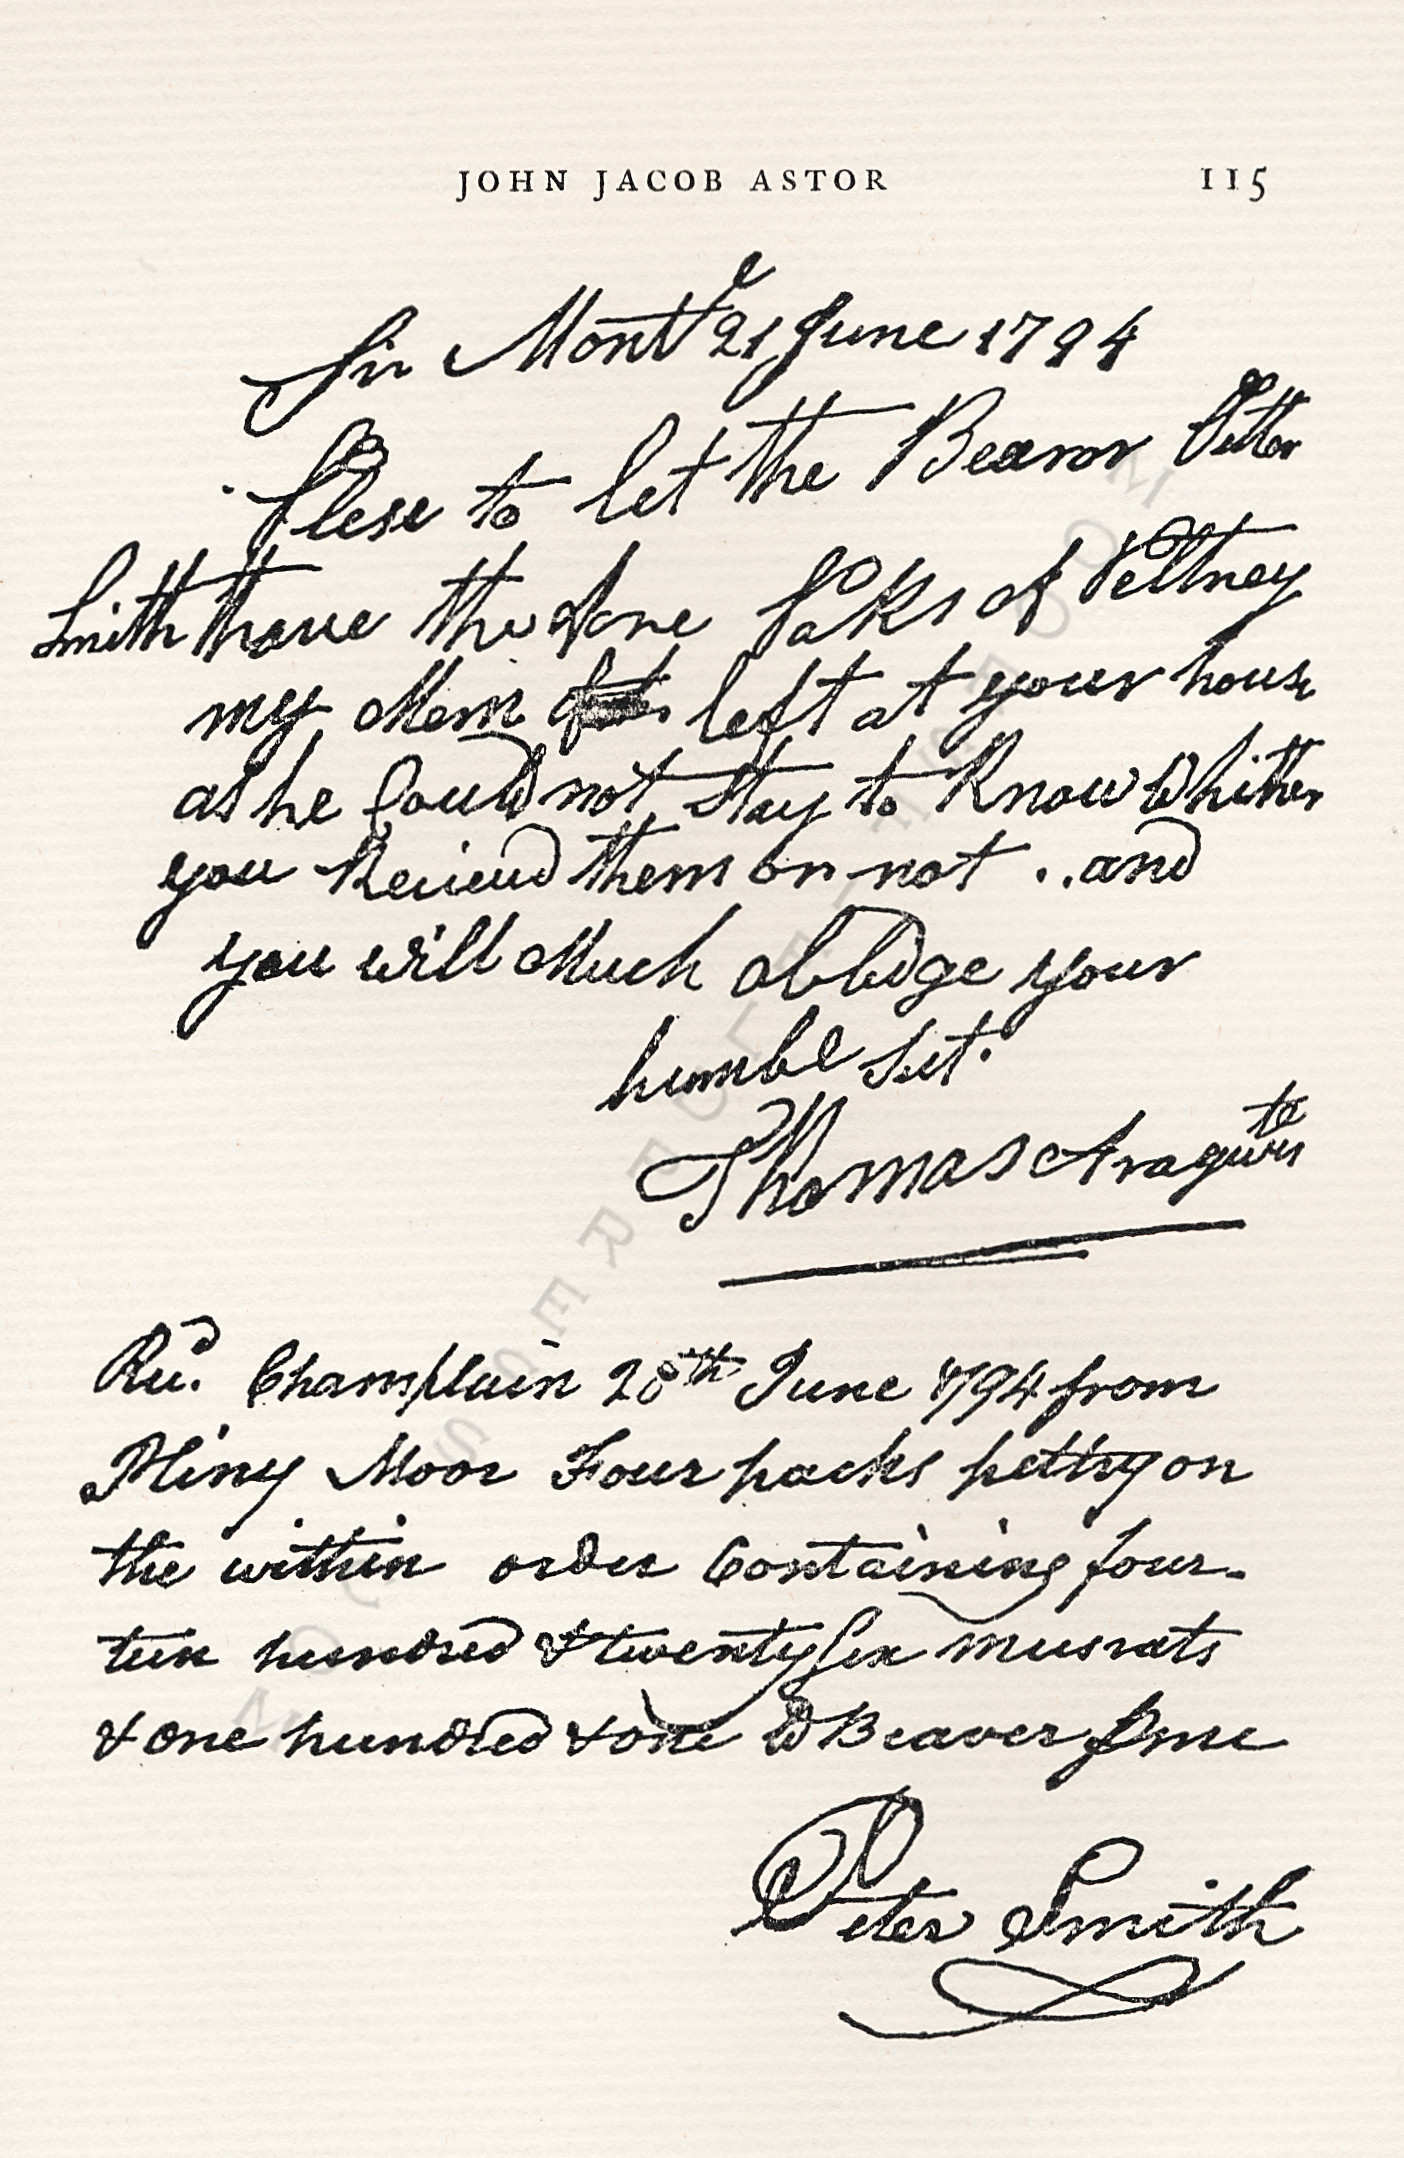 JOHN JACOB ASTOR 115
Sir Montl 21 June 1794
Plese to let the Bearor Petter
Smith have the fore Paks of Peltney
my Mem left at your house
as he Could not Stay to Know Whither
you Recieved them or not .. and
you will Much abblidge your
humble Sevt.
Thomas
Recd. Champlain 28th June 1794 from
Pliny Moor Four packs peltry on
the within order Containing four-
teen hundred & twenty Six musrats
& one hundred & one Do Beaver P me
Peter Smith